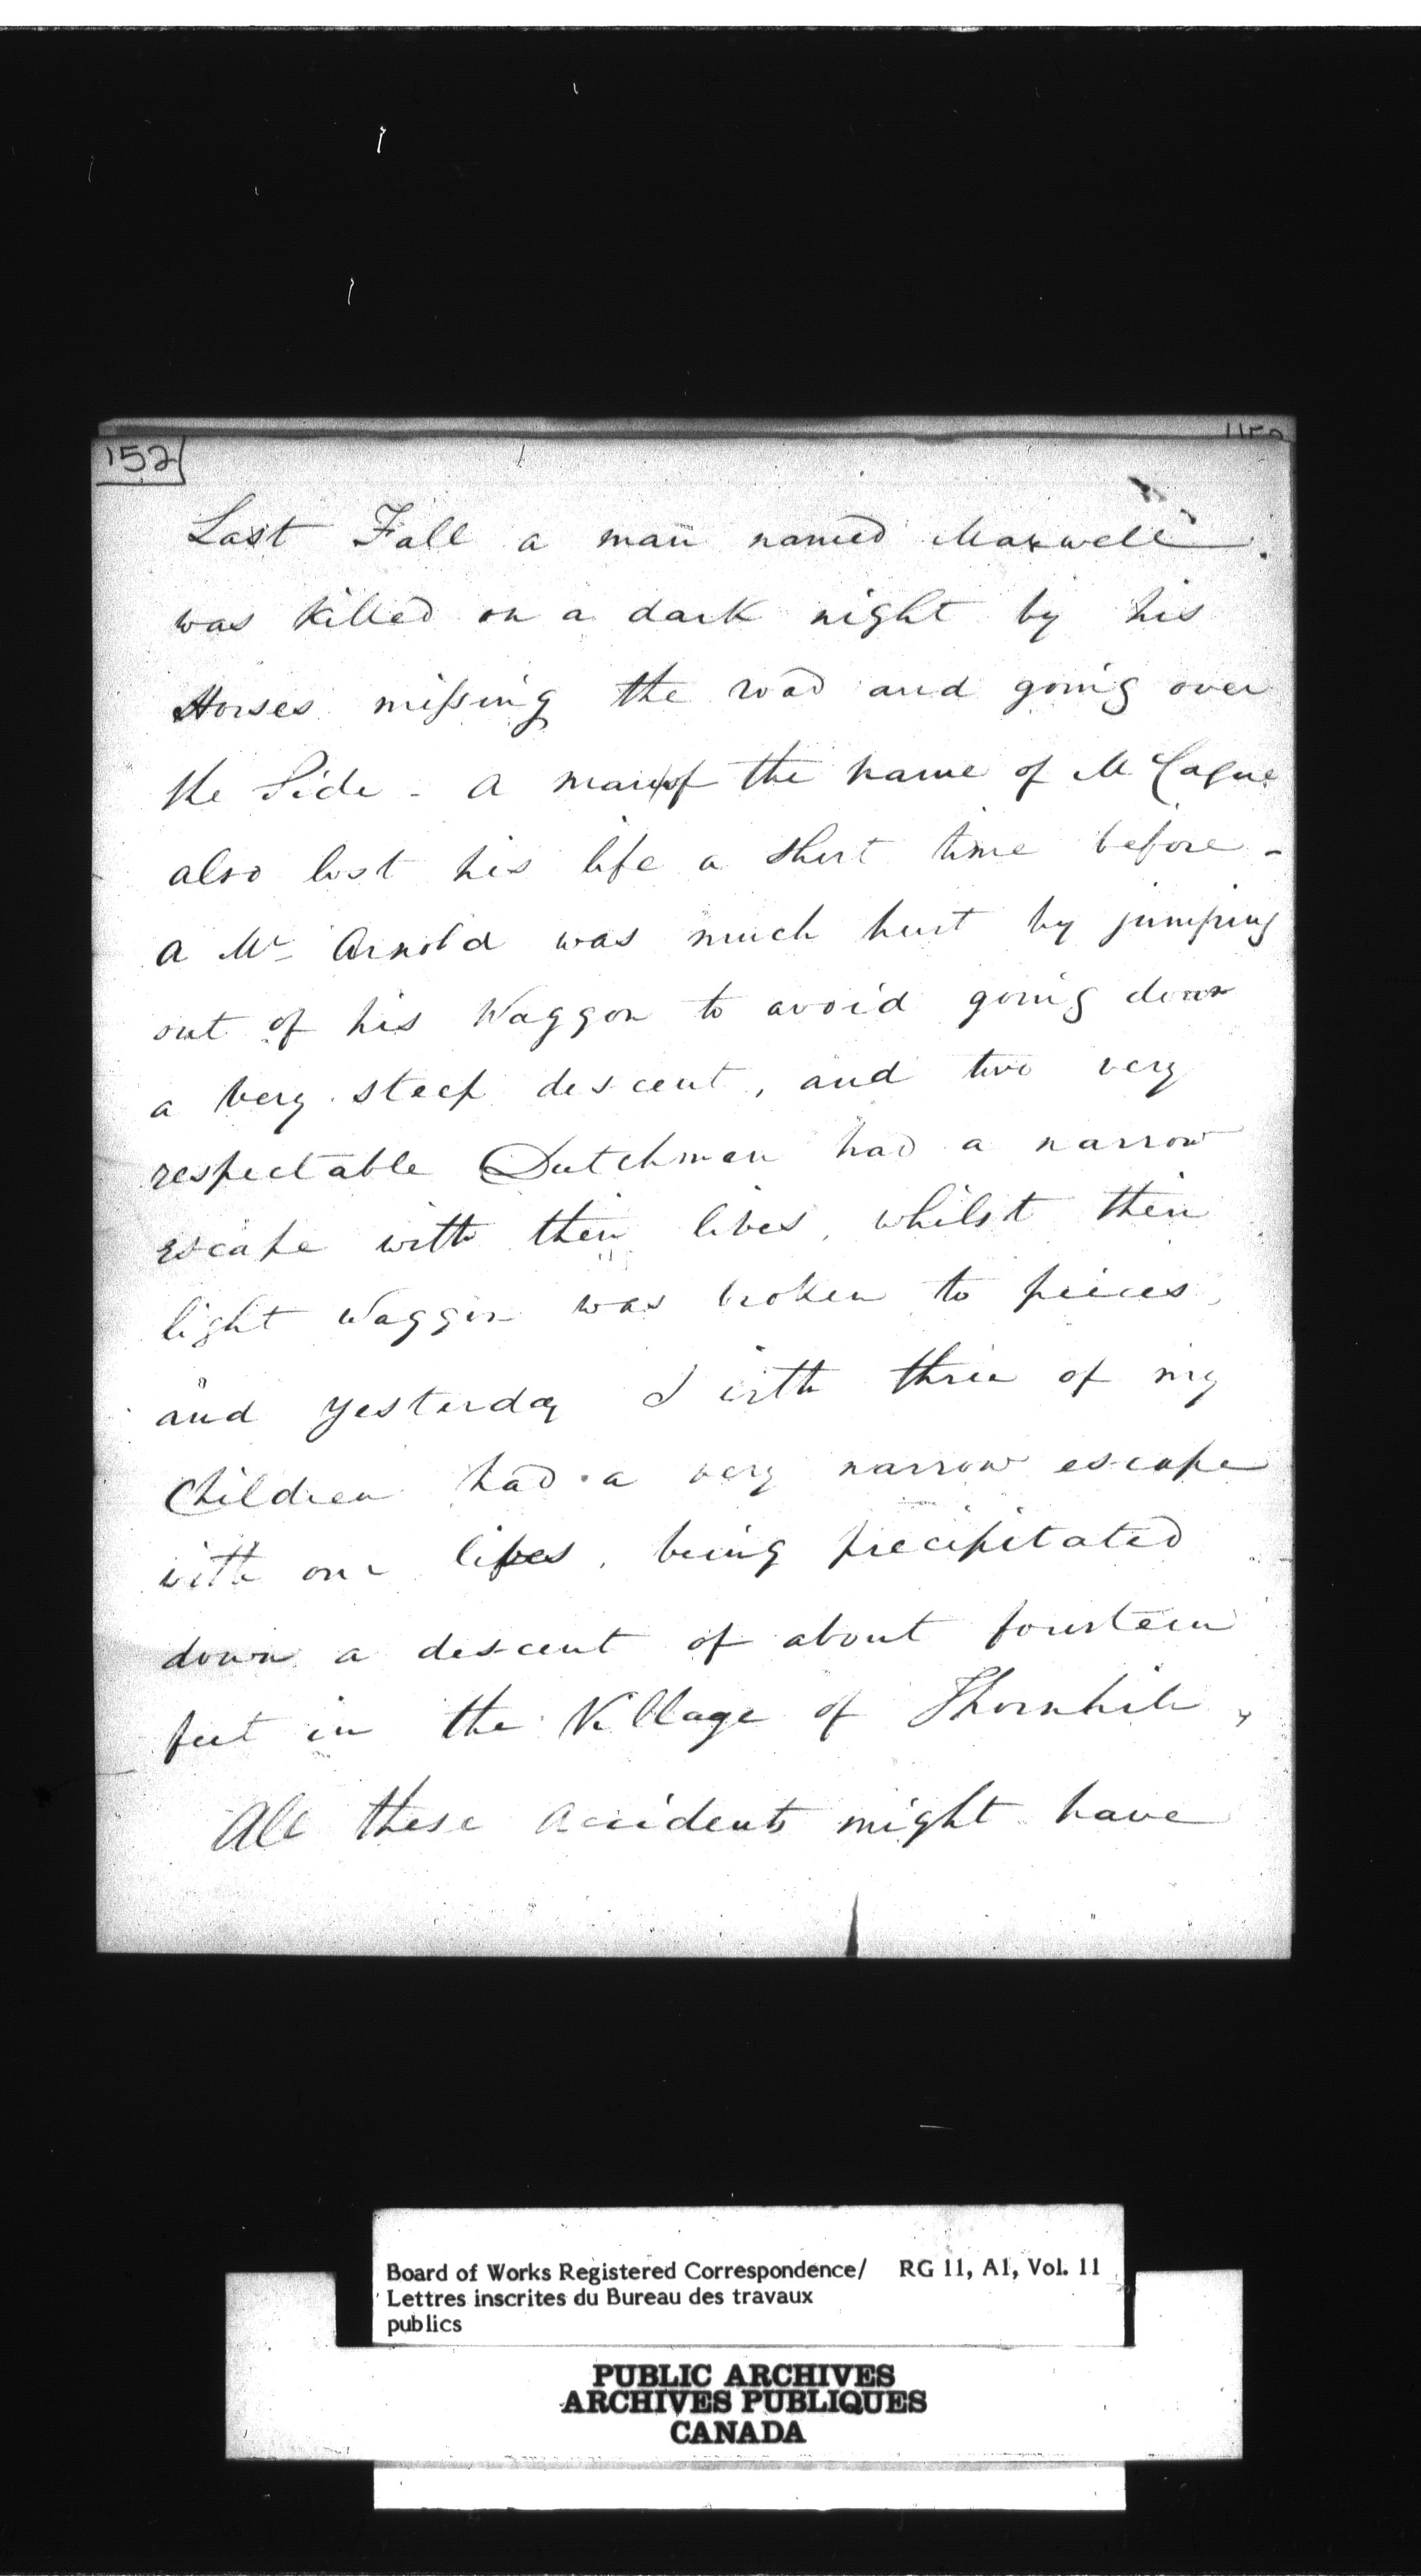 152
Last Fall a man named Maxwell
was killed on a dark night by his
Horses missing the road and going over
the Side - a man of the name of McCague
also lost his life a short time before -
a Mr Arnold was much hurt by jumping
out of his Waggon to avoid going down
a very steep descent, and two very
respectable Dutchmen had a narrow
escape with their lives, whilst their
light Waggon was broken to peices,
and yesterday I with three of my
Children had a very narrow escape
with our lives, being precipitated
down a descent of about fourteen
feet in the Village of Thornhill,
All these accidents might have
Board of Works Registered Correspondence/ RG 11, A1, Vol. 11
Lettres inscrites du Bureau des travaux
publics
PUBLIC ARCHIVES
ARCHIVES PUBLIQUES
CANADA